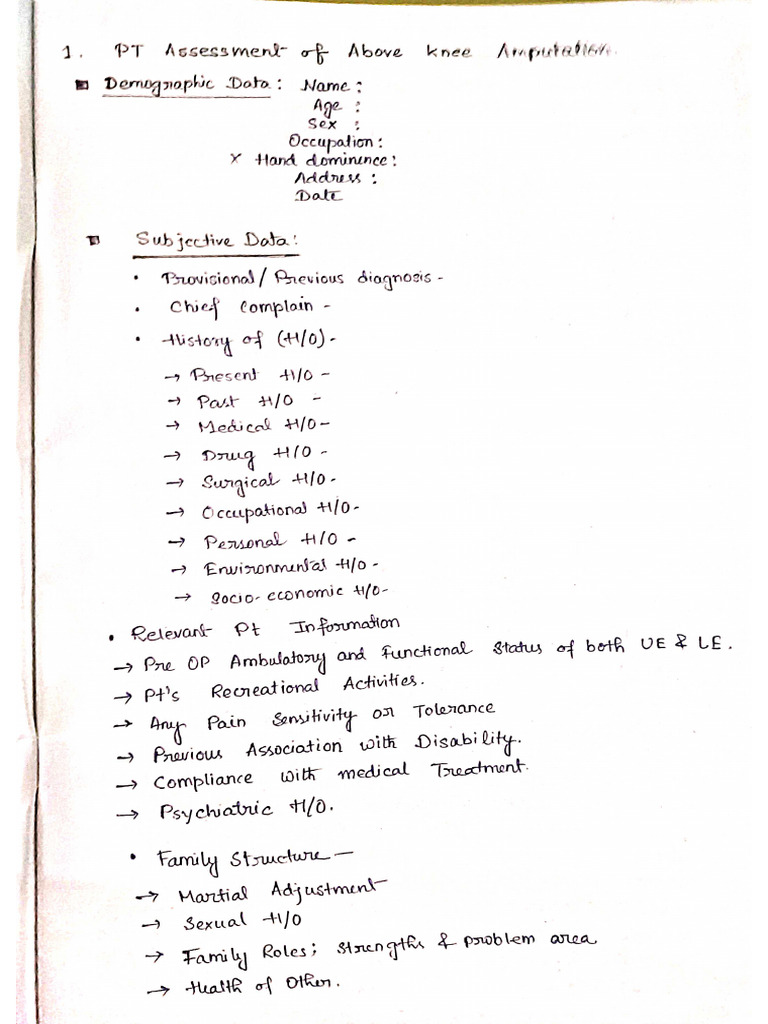 1. PT Assessment of Above Knee Amputation.
Demographic Data: Name:
Age :
Sex :
Occupation:
x Hand dominence:
Address :
Date
Subjective Data:
• Provisional/Previous diagnosis -
• Chief Complain -
• History of (H/O) -
→ Present H/O -
→ Past H/O -
→ Medical H/O -
→ Drug H/O -
→ Surgical H/O -
→ Occupational H/O -
→ Personal H/O -
→ Environmental H/O -
→ Socio-economic H/O -
• Relevant Pt Information
→ Pre OP Ambulatory and Functional Status of both UE & LE.
→ Pt's Recreational Activities.
→ Any Pain Sensitivity or Tolerance
→ Previous Association with Disability.
→ Compliance with medical Treatment.
→ Psychiatric H/O.
• Family Structure —
→ Martial Adjustment
→ Sexual H/O
→ Family Roles; strengths & problem area
→ Health of Other.